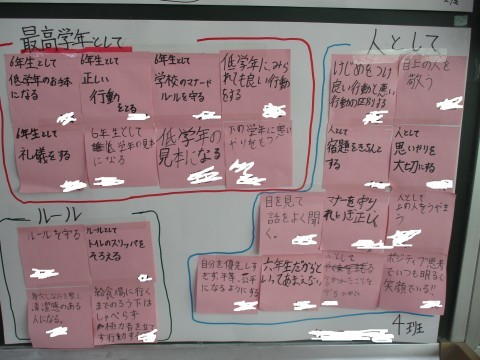 最高学年として
6年生として
低学年のお手本
になる
6年生として
正しい
行動
をとる
6年生として
学校のマナー
ルールを守る
低学年にみら
れても良い行動
をする
6年生として
礼儀をする
6年生として
低学年の見本
になる
低学年の
見本になる
下の学年に思い
やりをもつ
人として
けじめをつけ
良い行動と悪い
行動の区別する
目上の人を
敬う
人として
宿題をきちんと
する
人として
思いやりを
大切にする
目を見て
話をよく聞
く。
れいぎ正しく
人として
上の人をうやま
う
自分を優先しす
ぎず平等、公平
になるようにする
六年生だからと
いってあまえない
ポジティブ思考
でいつも明るく
笑顔でいる!!
4班
ルール
ルールを守る
ルールとして
トイレのスリッパを
そろえる
清潔感のある
人になる。
給食場に行く
までのろう下は
しゃべらず